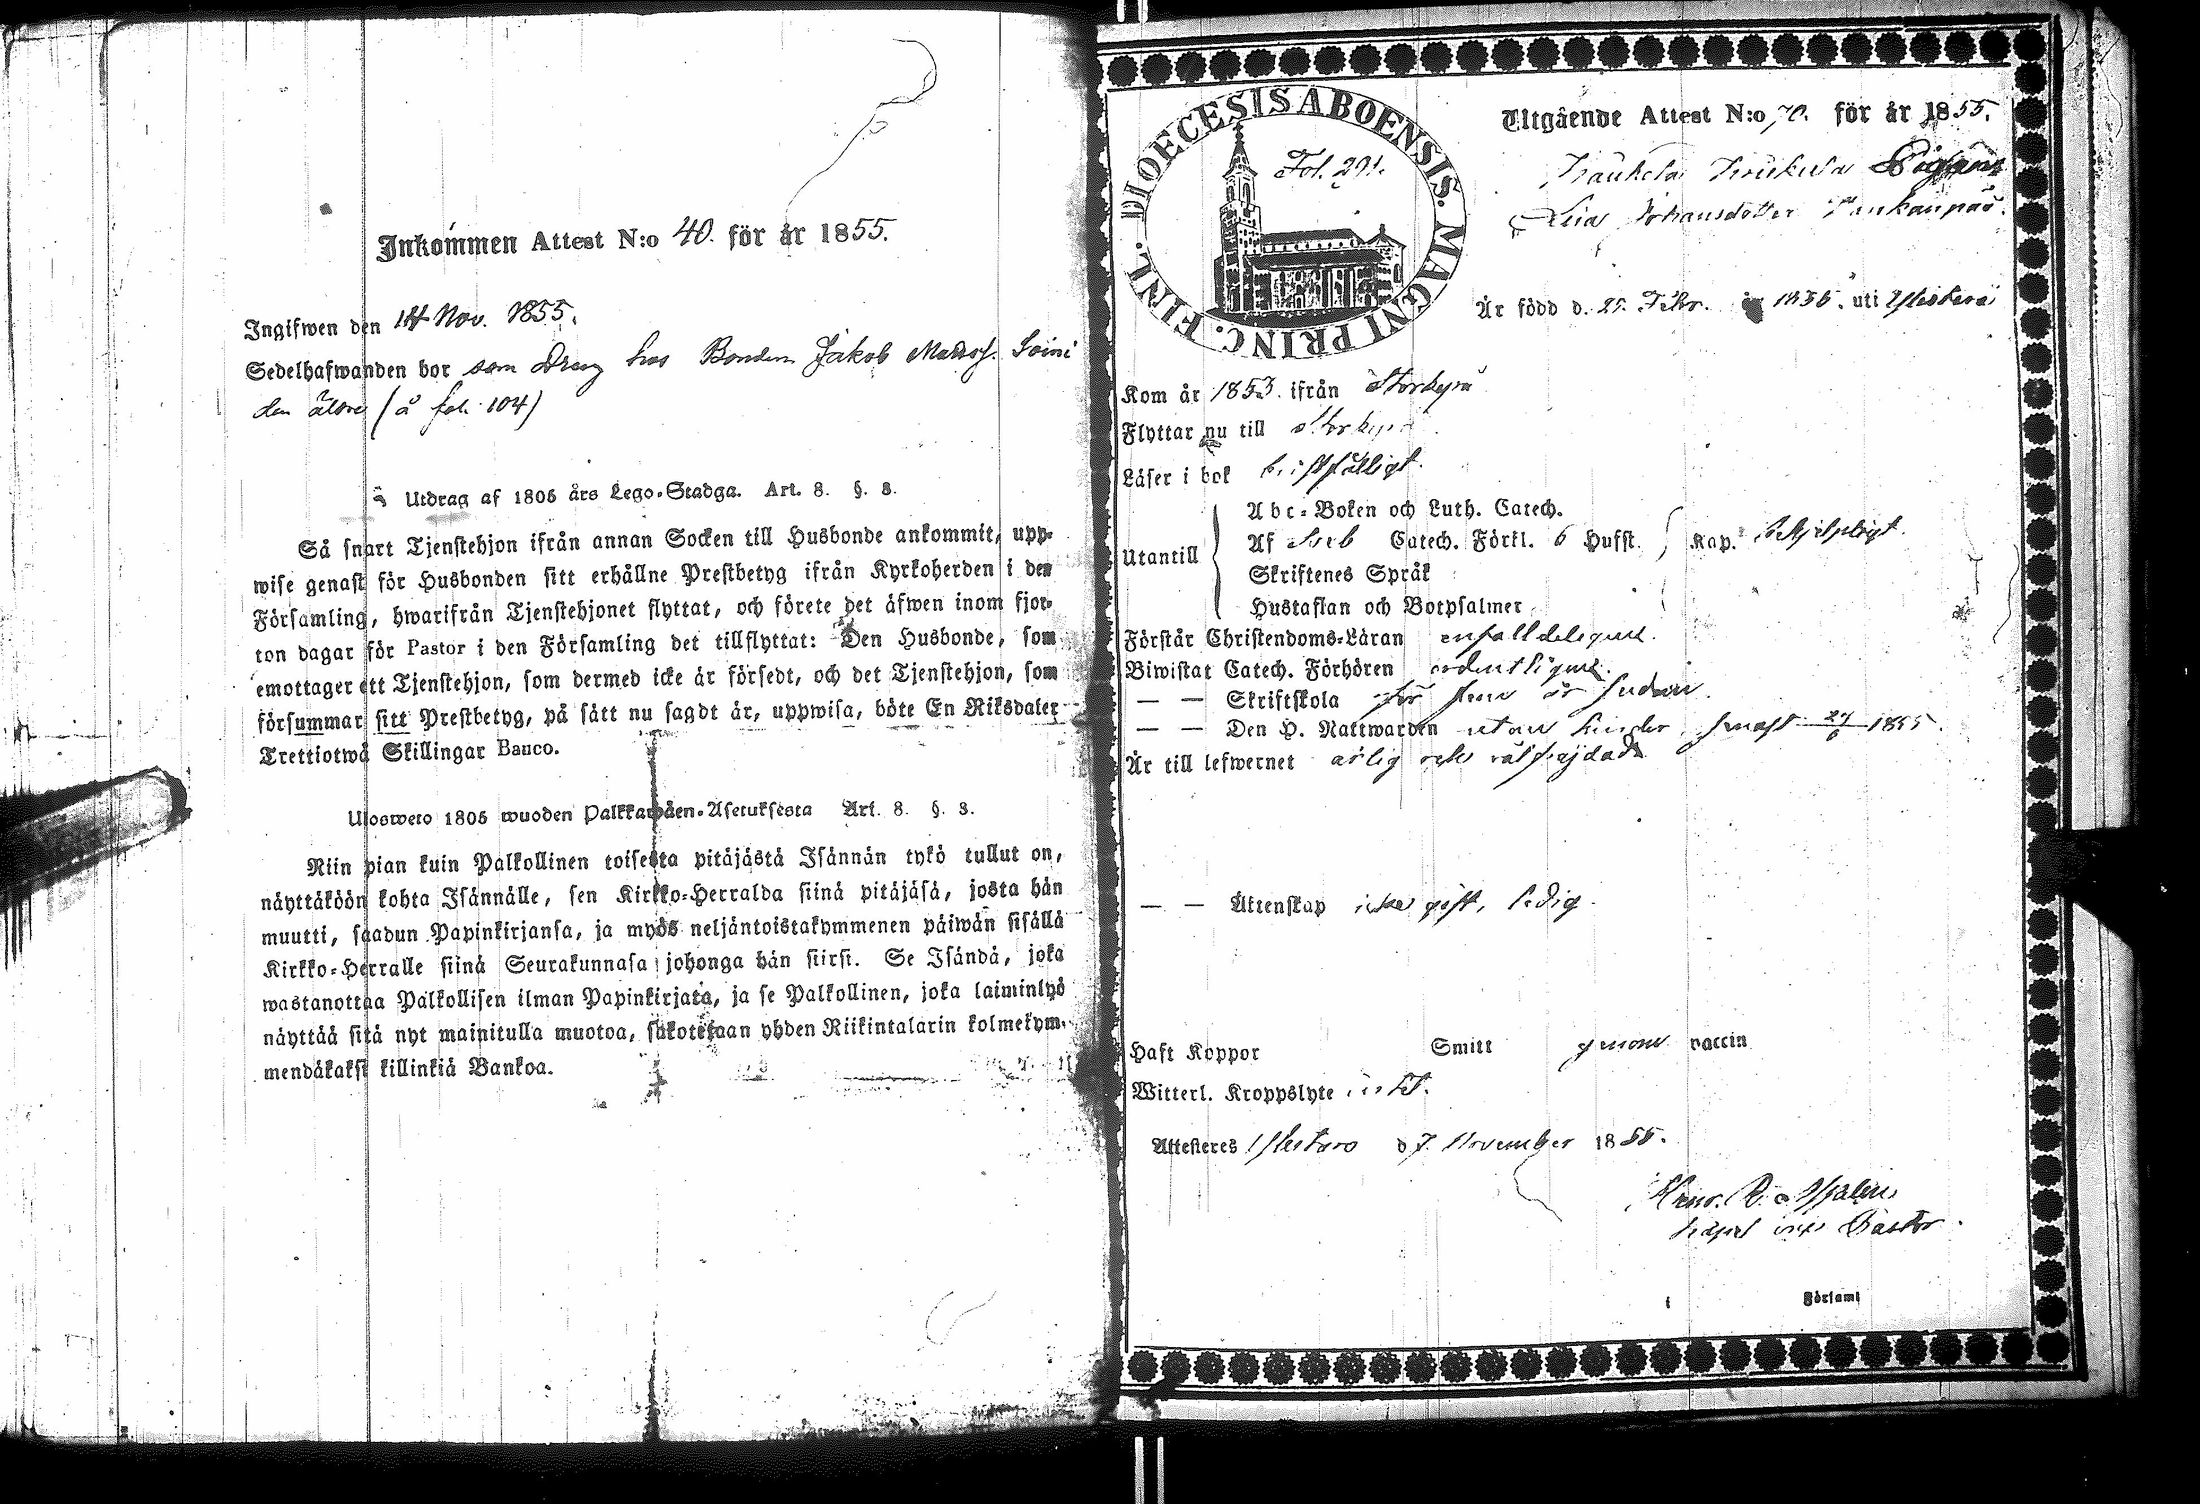 Inkommen Attest N:o 40. för år 1855.
Ingifwen den 14 Nov. 1855.
Sedelhafwanden bor som Dreng hos Bonden Jakob Matts. Soini
den äldre (å fol. 104)
Utdrag af 1805 års Lego-Stadga. Art. 8. §. 3.
Så snart Tjenstehjon ifrån annan Socken till Husbonde ankommit, upp-
wise genast för Husbonden sitt erhållne Prestbetyg ifrån Kyrkoherden i den
Församling, hwarifrån Tjenstehjonet flyttat, och förete det äfwen inom fjor-
ton dagar för Pastor i den Församling det tillflyttat: Den Husbonde, som
emottager ett Tjenstehjon, som dermed icke är försedt, och det Tjenstehjon, som
försummar sitt Prestbetyg, på sätt nu sagdt är, uppwisa, böte En Riksdaler
Trettiotwå Skillingar Banco.
Ulosweto 1805 wuoden Palkkawäen-Asetuksesta Art. 8. §. 3.
Niin pian kuin Palkollinen toisesta pitäjästä Isännän tykö tullut on,
näyttäköön kohta Isännälle, sen Kirkko-Herralda siinä pitäjäsä, josta hän
muutti, saadun Papinkirjansa, ja myös neljäntoistakymmenen päiwän sisällä
Kirkko-Herralle siinä Seurakunnasa johonga hän siirsi. Se Isändä, joka
wastanottaa Palkollisen ilman Papinkirjata, ja se Palkollinen, joka laiminlyö
näyttää sitä nyt mainitulla muotoa, sakotetaan yhden Riikintalarin kolmekym-
mendäkaksi killinkiä Bankoa.
DIOECESIS ABOENSIS. MAGNI PRINC. FINL.
Fol. 291.
Utgående Attest N:o 70. för år 1855.
Pigan
Johansdotter
Är född d. 25 Febr. uti Ylistaro
Kom år 1853. ifrån Storkyro
Flyttar nu till Storkyro
Läser i bok bristfälligt.
Utantill
Abc-Boken och Luth. Catech.
Af Sveb Catech. Förkl. 6 Hufst. Kap. behjelpligt.
Skriftenes Språk
Hustaflan och Botpsalmer
Förstår Christendoms-Läran enfalldeligen.
Biwistat Catech. Förhören ordentligen.
— — Skriftskola för
— — Den H. Nattwarden utan hinder, senast 24/6 1855.
Är till lefwernet ärlig och välfrejdad
— — Äktenskap icke gift, ledig.
Haft Koppor Smitt genom vaccin
Witterl. Kroppslyte intet.
Attesteres Ylistaro d 7 November 1855.
Pastor.
i Församl